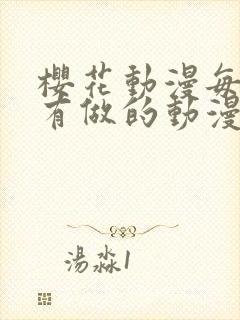 櫻花動漫每
有做的動漫
湯淼1